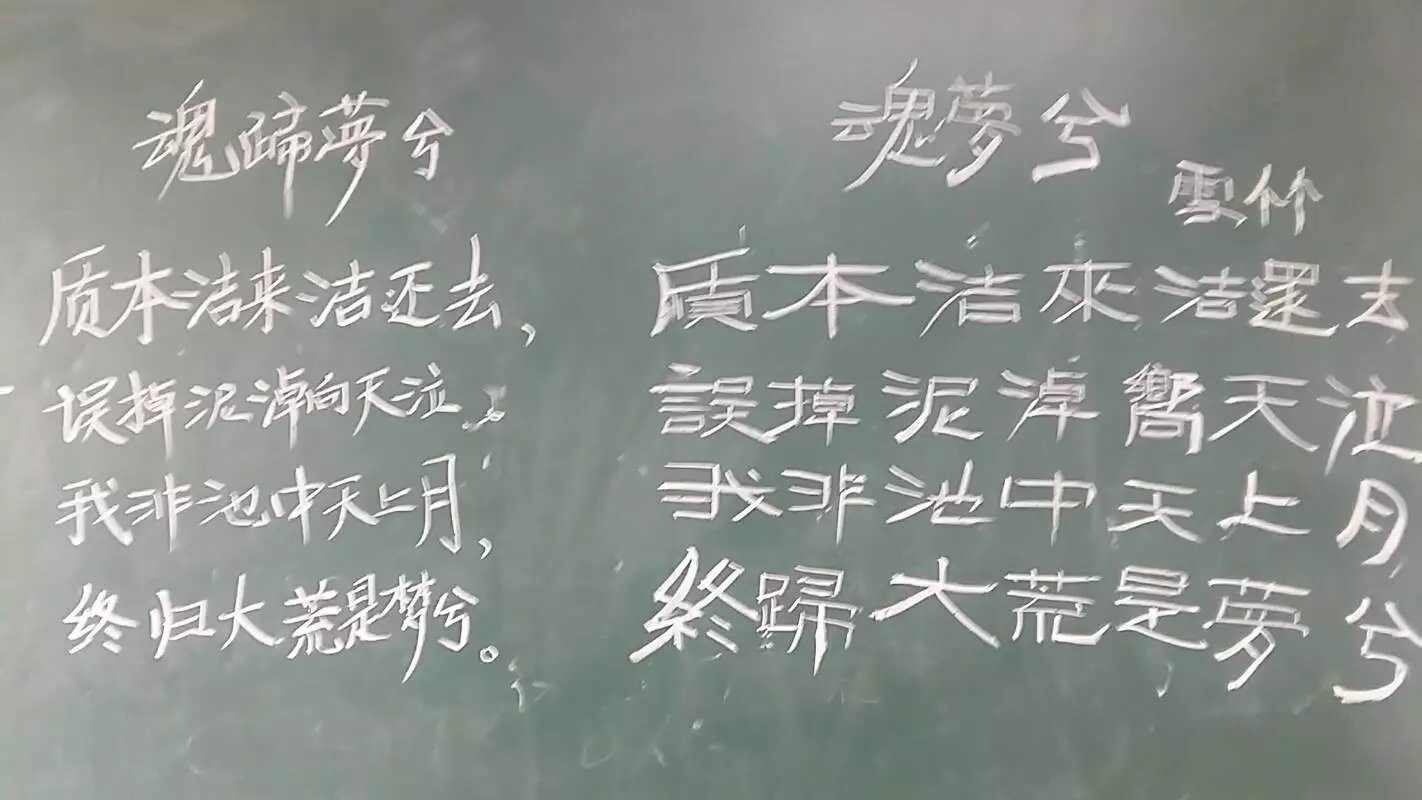 魂歸夢兮
质本洁来洁还去，
误掉泥淖向天泣。
我非池中天上月，
终归大荒是梦兮。
魂夢兮
雪竹
质本洁來洁還去
誤掉泥淖嚮天泣
我非池中天上月
終歸大荒是夢兮